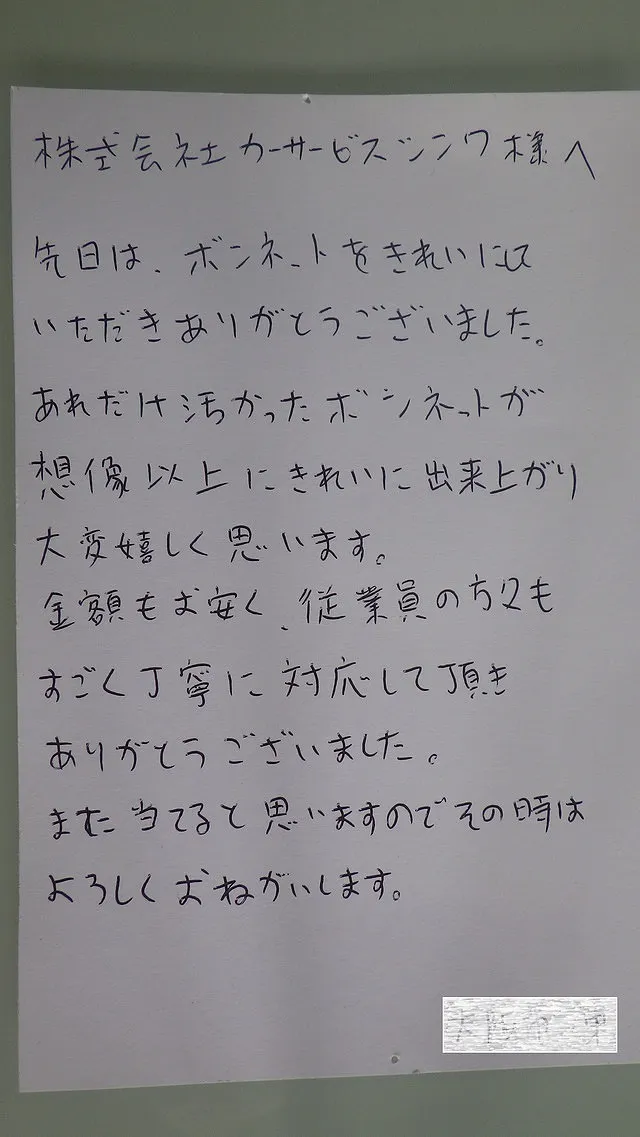 株式会社カーサービスシンワ様へ
先日は、ボンネットをきれいにして
いただきありがとうございました。
あれだけ汚かったボンネットが
想像以上にきれいに出来上がり
大変嬉しく思います。
金額もお安く、従業員の方々も
すごく丁寧に対応して頂き
ありがとうございました。
また当てると思いますのでその時は
よろしくおねがいします。